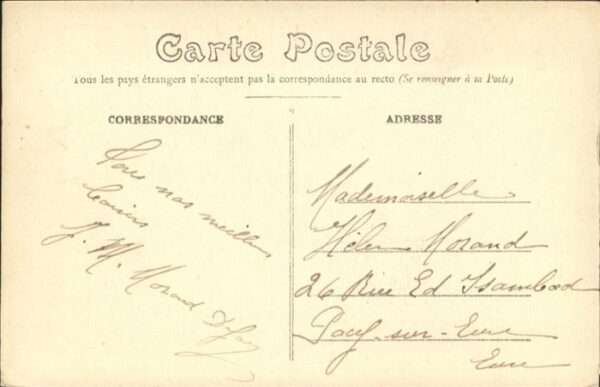 Carte Postale
Tous les pays étrangers n'acceptent pas la correspondance au recto (Se renseigner à la Poste)
CORRESPONDANCE
ADRESSE
Tous nos meilleurs
baisers
J. M. Morand
Mademoiselle
Hélène Morand
26 Rue Ed Isambard
Pacy-sur-Eure
Eure